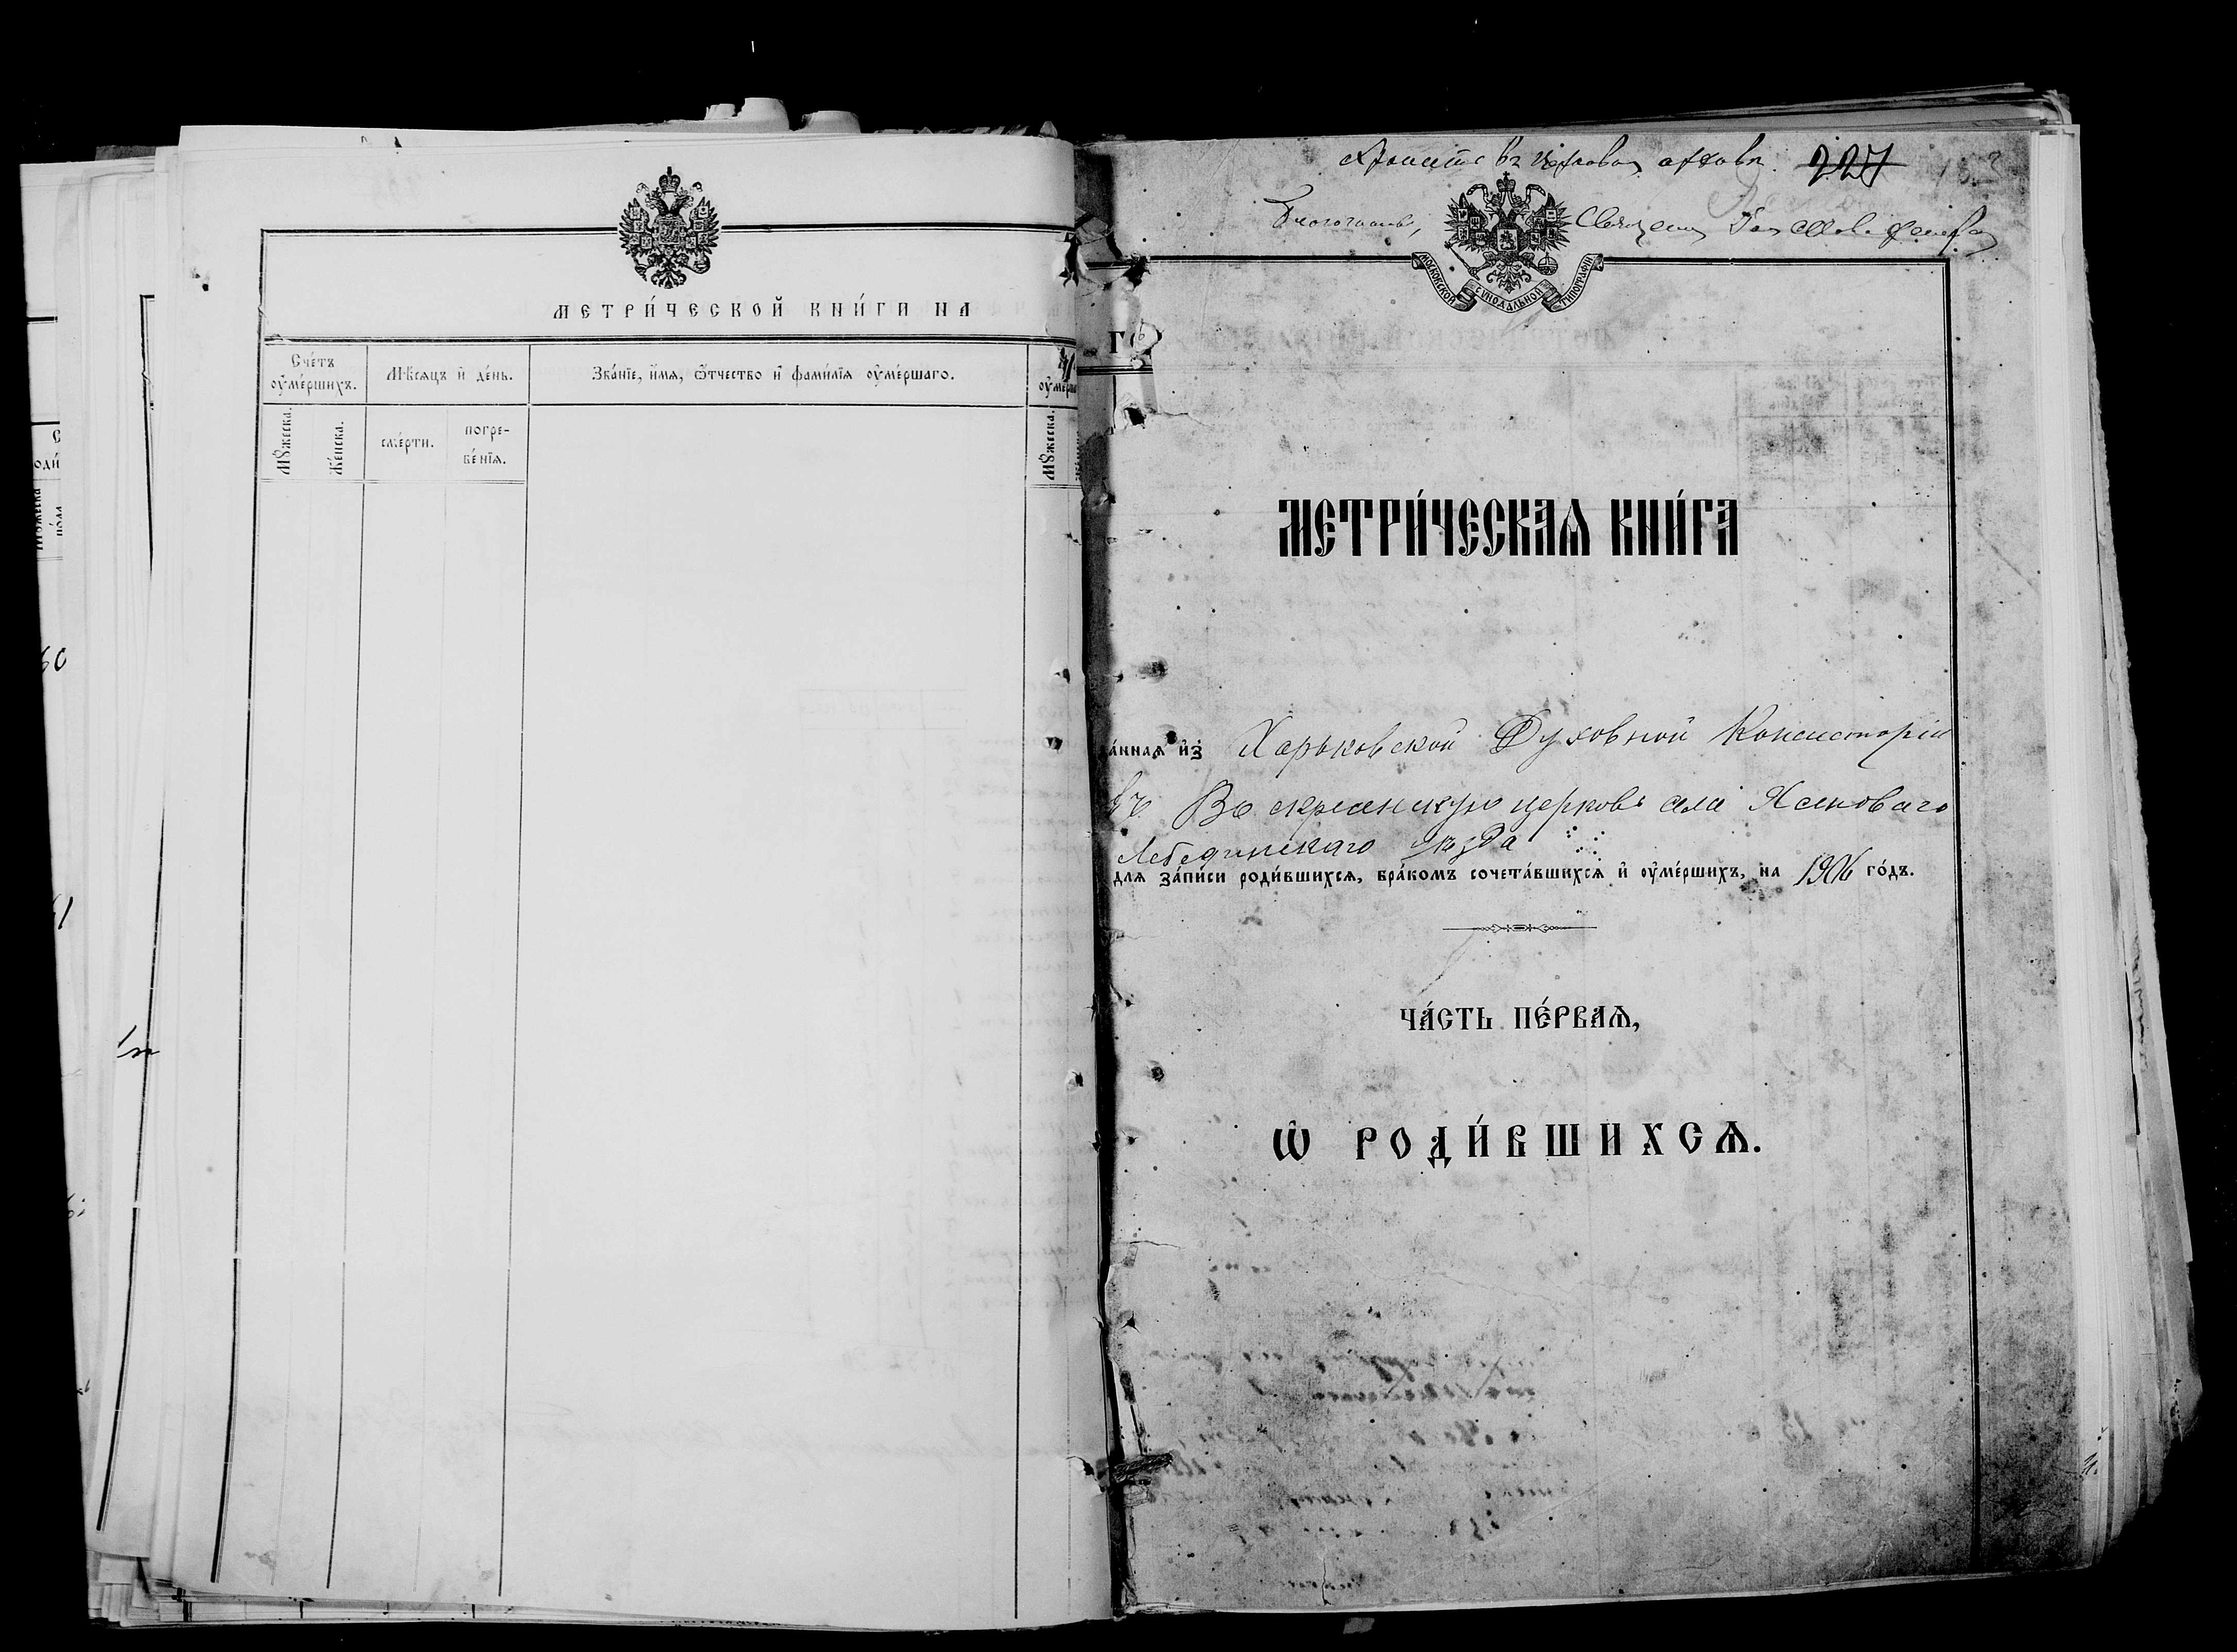 МЕТРИ́ЧЕСКОЙ КНИ́ГИ НА
Сче́тъ ᲂу҆ме́ршихъ.
Мѣ́сяцъ и҆ де́нь.
Зва́нїе, и҆́мя, ѻ҆́тчество и҆ фами́лїя ᲂу҆ме́ршаго.
Мꙋ́жеска.
Же́нска.
сме́рти.
погре-
бе́нїя.
Мꙋ́жеска.
въ церковн архивѣ 227
Благочинный, Священ
МОСКОВСКОЙ СѴНОДАЛЬНОЙ ТИПОГРАФІИ
МЕТРИ́ЧЕСКАѦ КНИ́ГА
да́ннаѧ и҆з̾ Харьковской Духовной Консисторіи
въ Воскресенскую церковь села Ясеноваго
Лебединскаго уѣзда
для за́писи роди́вшихсѧ, бра́комъ сочета́вшихсѧ и҆ ᲂу҆ме́ршихъ, на 1906 го́дъ.
ЧА́СТЬ ПЕ́РВАѦ,
Ѡ҆ РОДИ́ВШИХСѦ.